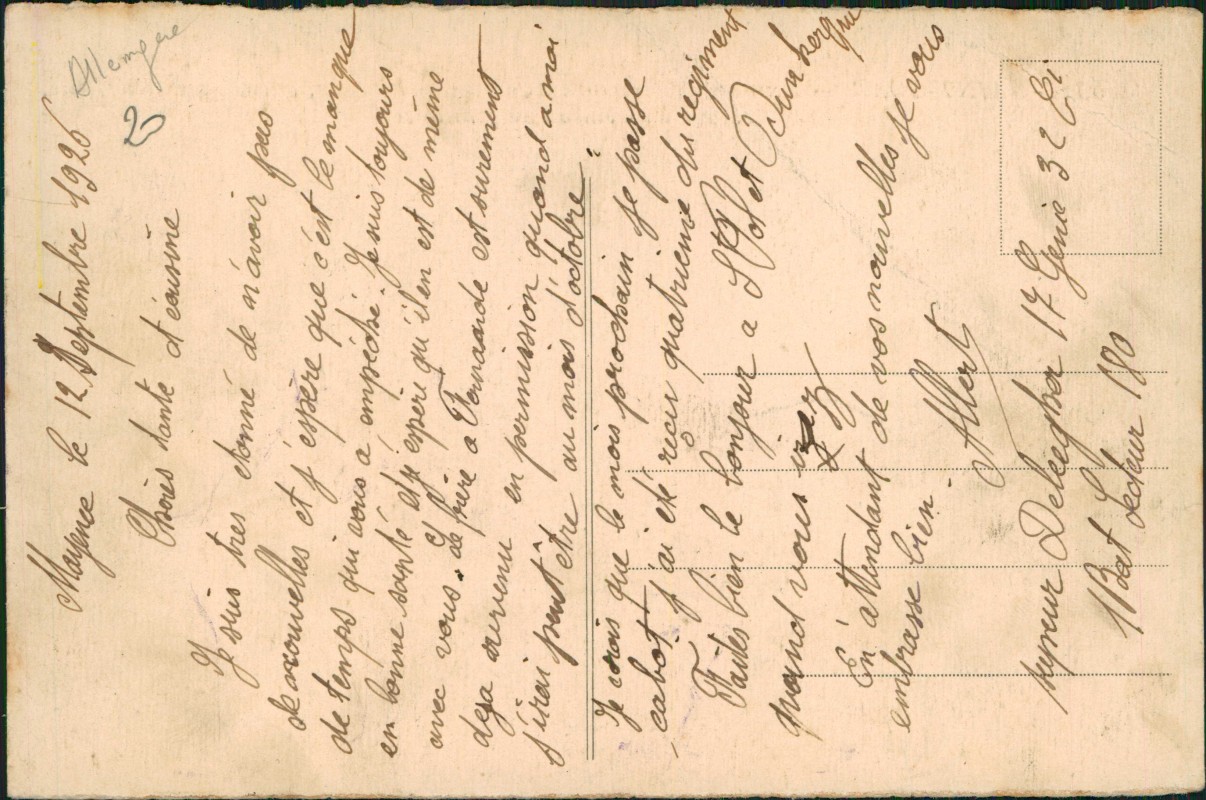 Allemgere
20
Mayence le 12 Septembre 1926
Chères tante et cousine
Je suis tres etonné de n'avoir pas
de nouvelles et j'espère que c'est le manque
de temps qui vous a empéché. Je suis toujours
en bonne santé et j'espère qu'il en est de même
avec vous. Le frère a Fernande est surement
deja revenu en permission quand a moi
j'irai peut être au mois d'octobre.
Je crois que le mois prochain je passe
cabot j'ai été reçu quatrieme du regiment
Faites bien le bonjour a St Pol et Dunkerque
quand vous irez
En attendant de vos nouvelles je vous
embrasse bien.
Albert
Sapeur 17 Genie 32 Cie
1 Bat Secteur 180